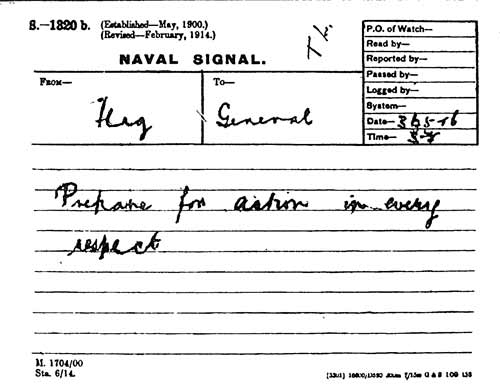 S.—1320 b. (Established—May, 1900.)
(Revised—February, 1914.)
NAVAL SIGNAL.
P.O. of Watch—
Read by—
Reported by—
Passed by—
Logged by—
System—
Date—
Time—
From—
Flag
To—
General
Prepare for action in every
respect
M. 1704/00
Sta. 6/14.